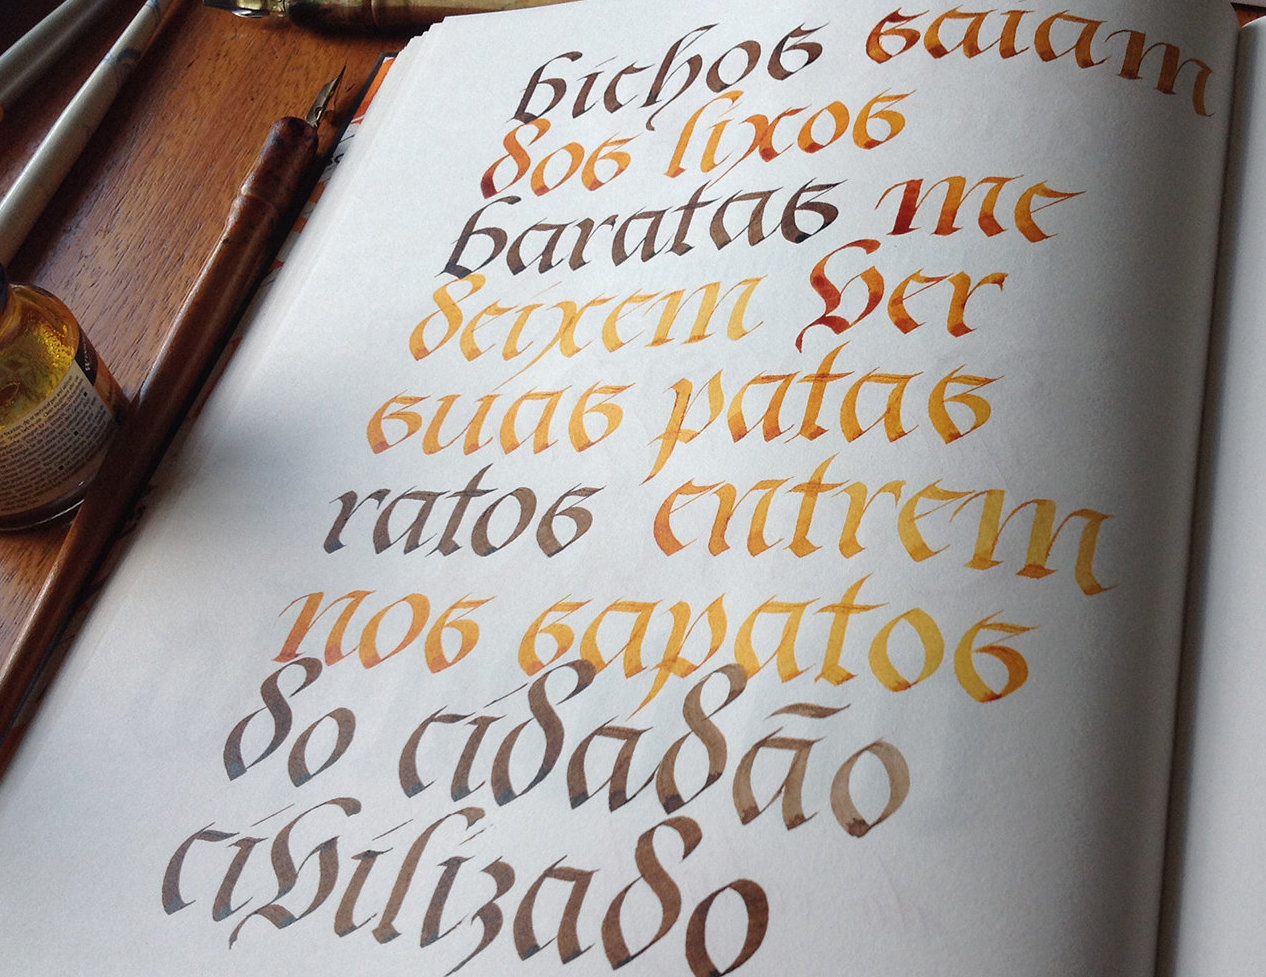 bichos saiam
dos lixos
baratas me
deixem ver
suas patas
ratos entrem
nos sapatos
do cidadão
civilizado